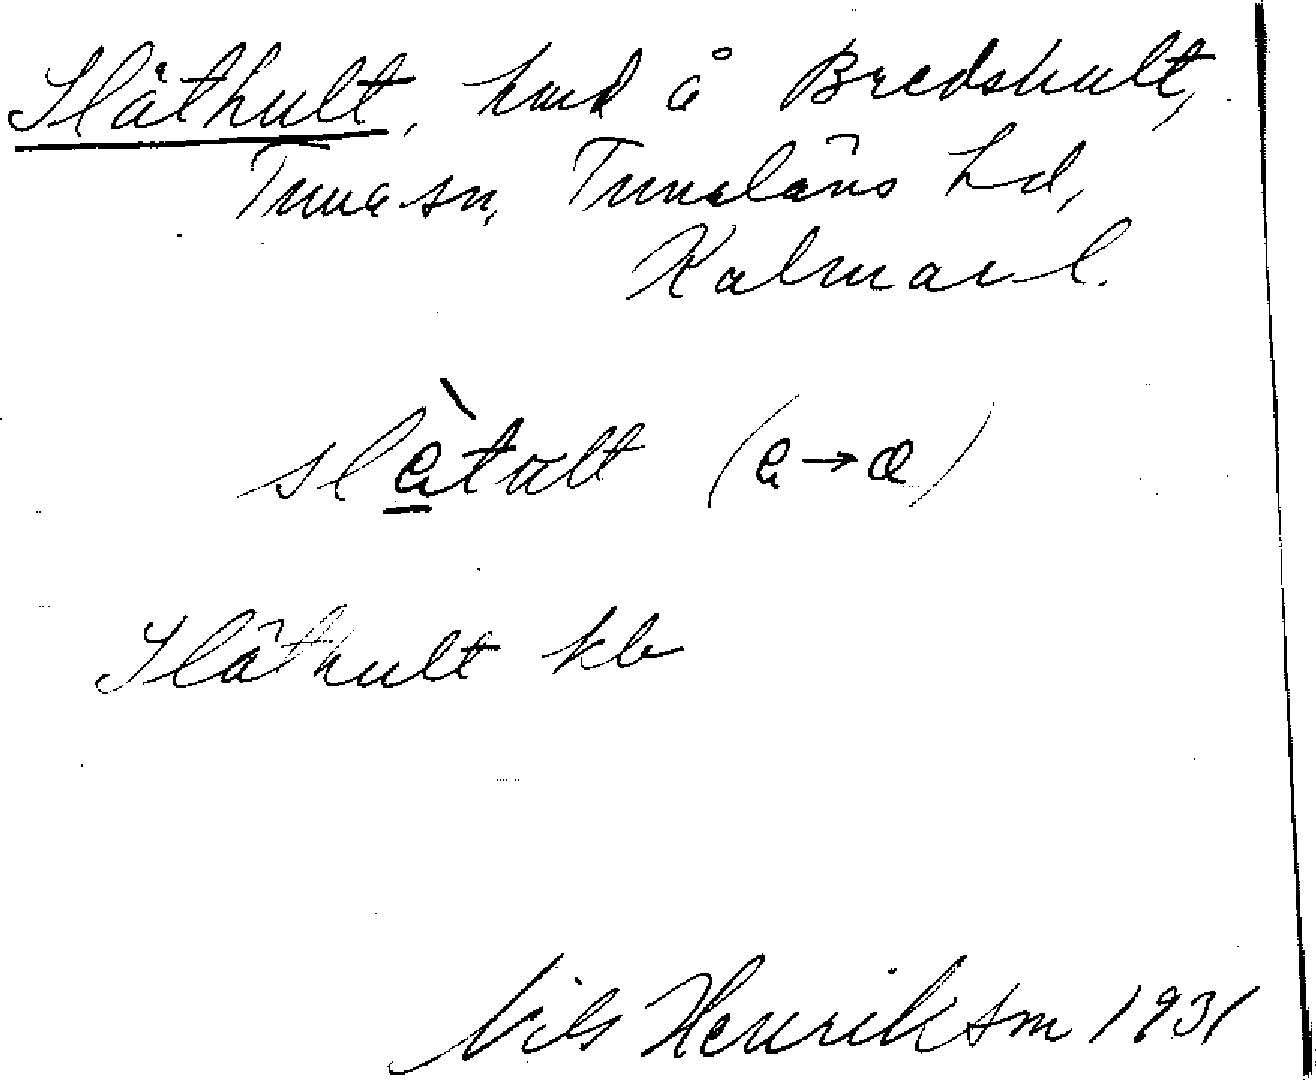 Slåthult, hmd å Bredshult,
Tuna sn, Tunaläns hd,
Kalmar l.
slàtult (a→œ)
Slåthult kb
Nils Henrikson 1931